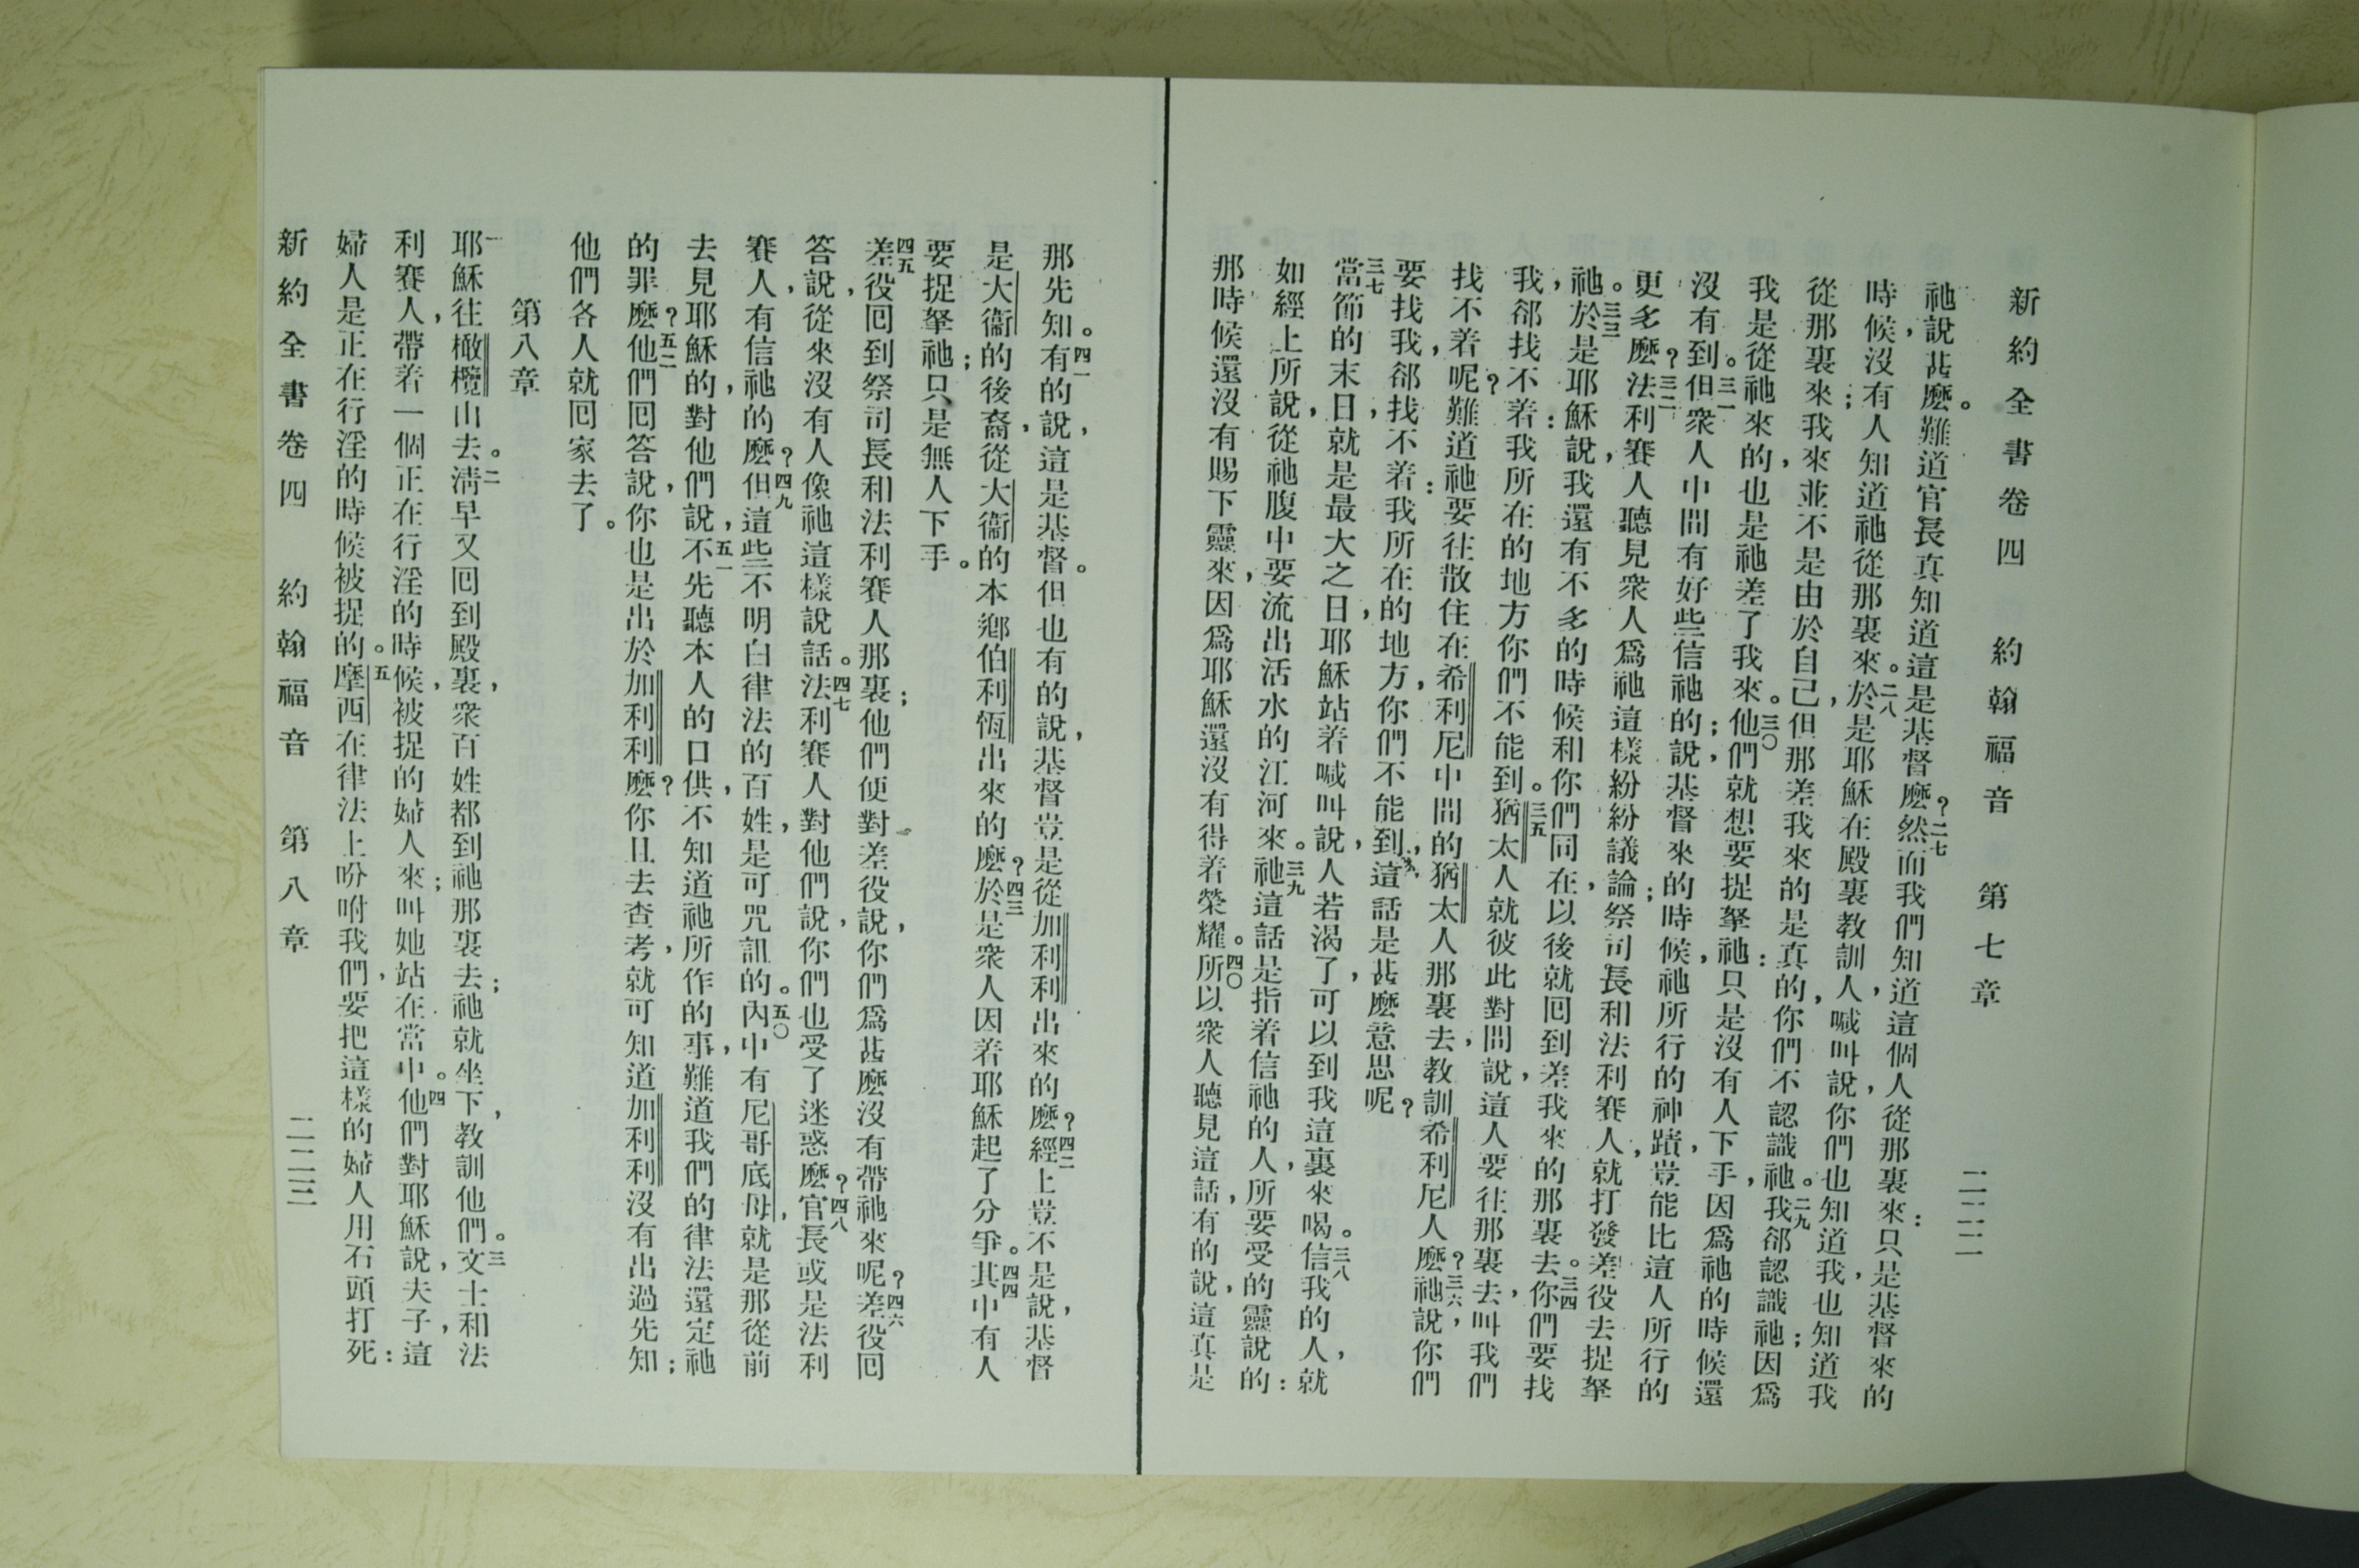 新約全書卷四　約翰福音　第七章　二二二
祂說甚麽。難道官長真知道這是基督麽？二七然而我們知道這個人從那裏來：只是基督來的
時候，沒有人知道祂從那裏來。二八於是耶穌在殿裏教訓人，喊叫說，你們也知道我，也知道我
從那裏來；我來，並不是由於自己，但那差我來的是真的，你們不認識祂。二九我郤認識祂；因爲
我是從祂來的，也是祂差了我來。三〇他們就想要捉拏祂：只是沒有人下手，因爲祂的時候還
沒有到。三一但衆人中間有好些信祂的；說，基督來的時候，祂所行的神蹟，豈能比這人所行的
更多麽？三二法利賽人聽見衆人爲祂這樣紛紛議論；祭司長和法利賽人，就打發差役去捉拏
祂。三三於是耶穌說，我還有不多的時候和你們同在，以後就囘到差我來的那裏去。三四你們要找
我，郤找不着：我所在的地方你們不能到。三五猶太人就彼此對問說，這人要往那裏去，叫我們
找不着呢？難道祂要往散住在希利尼中間的猶太人那裏去，教訓希利尼人麽？三六祂說，你們
要找我，郤找不着：我所在的地方，你們不能到，這話是甚麽意思呢？
三七當節的末日，就是最大之日，耶穌站着喊叫說，人若渴了，可以到我這裏來喝。三八信我的人，就
如經上所說，從祂腹中要流出活水的江河來。三九祂這話是指着信祂的人，所要受的靈說的：
那時候還沒有賜下靈來，因爲耶穌還沒有得着榮耀。四〇所以衆人聽見這話，有的說，這真是
那先知。四一有的說，這是基督。但也有的說，基督豈是從加利利出來的麽？四二經上豈不是說，基督
是大衞的後裔，從大衞的本鄉伯利恆出來的麽？四三於是衆人因着耶穌起了分爭。四四其中有人
要捉拏祂；只是無人下手。
四五差役囘到祭司長和法利賽人那裏；他們便對差役說，你們爲甚麽沒有帶祂來呢？四六差役囘
答說，從來沒有人像祂這樣說話。四七法利賽人對他們說，你們也受了迷惑麽？四八官長或是法利
賽人，有信祂的麽？四九但這些不明白律法的百姓，是可咒詛的。五〇內中有尼哥底母，就是那從前
去見耶穌的，對他們說，五一不先聽本人的口供，不知道祂所作的事，難道我們的律法還定祂
的罪麽？五二他們囘答說，你也是出於加利利麽？你且去查考，就可知道加利利沒有出過先知；
他們各人就囘家去了。
第八章
一耶穌往橄欖山去。二淸早又囘到殿裏，衆百姓都到祂那裏去；祂就坐下，教訓他們。三文士和法
利賽人，帶着一個正在行淫的時候，被捉的婦人來；叫她站在當中。四他們對耶穌說，夫子，這
婦人是正在行淫的時候被捉的。五摩西在律法上吩咐我們，要把這樣的婦人用石頭打死：
新約全書卷四　約翰福音　第八章　二二三